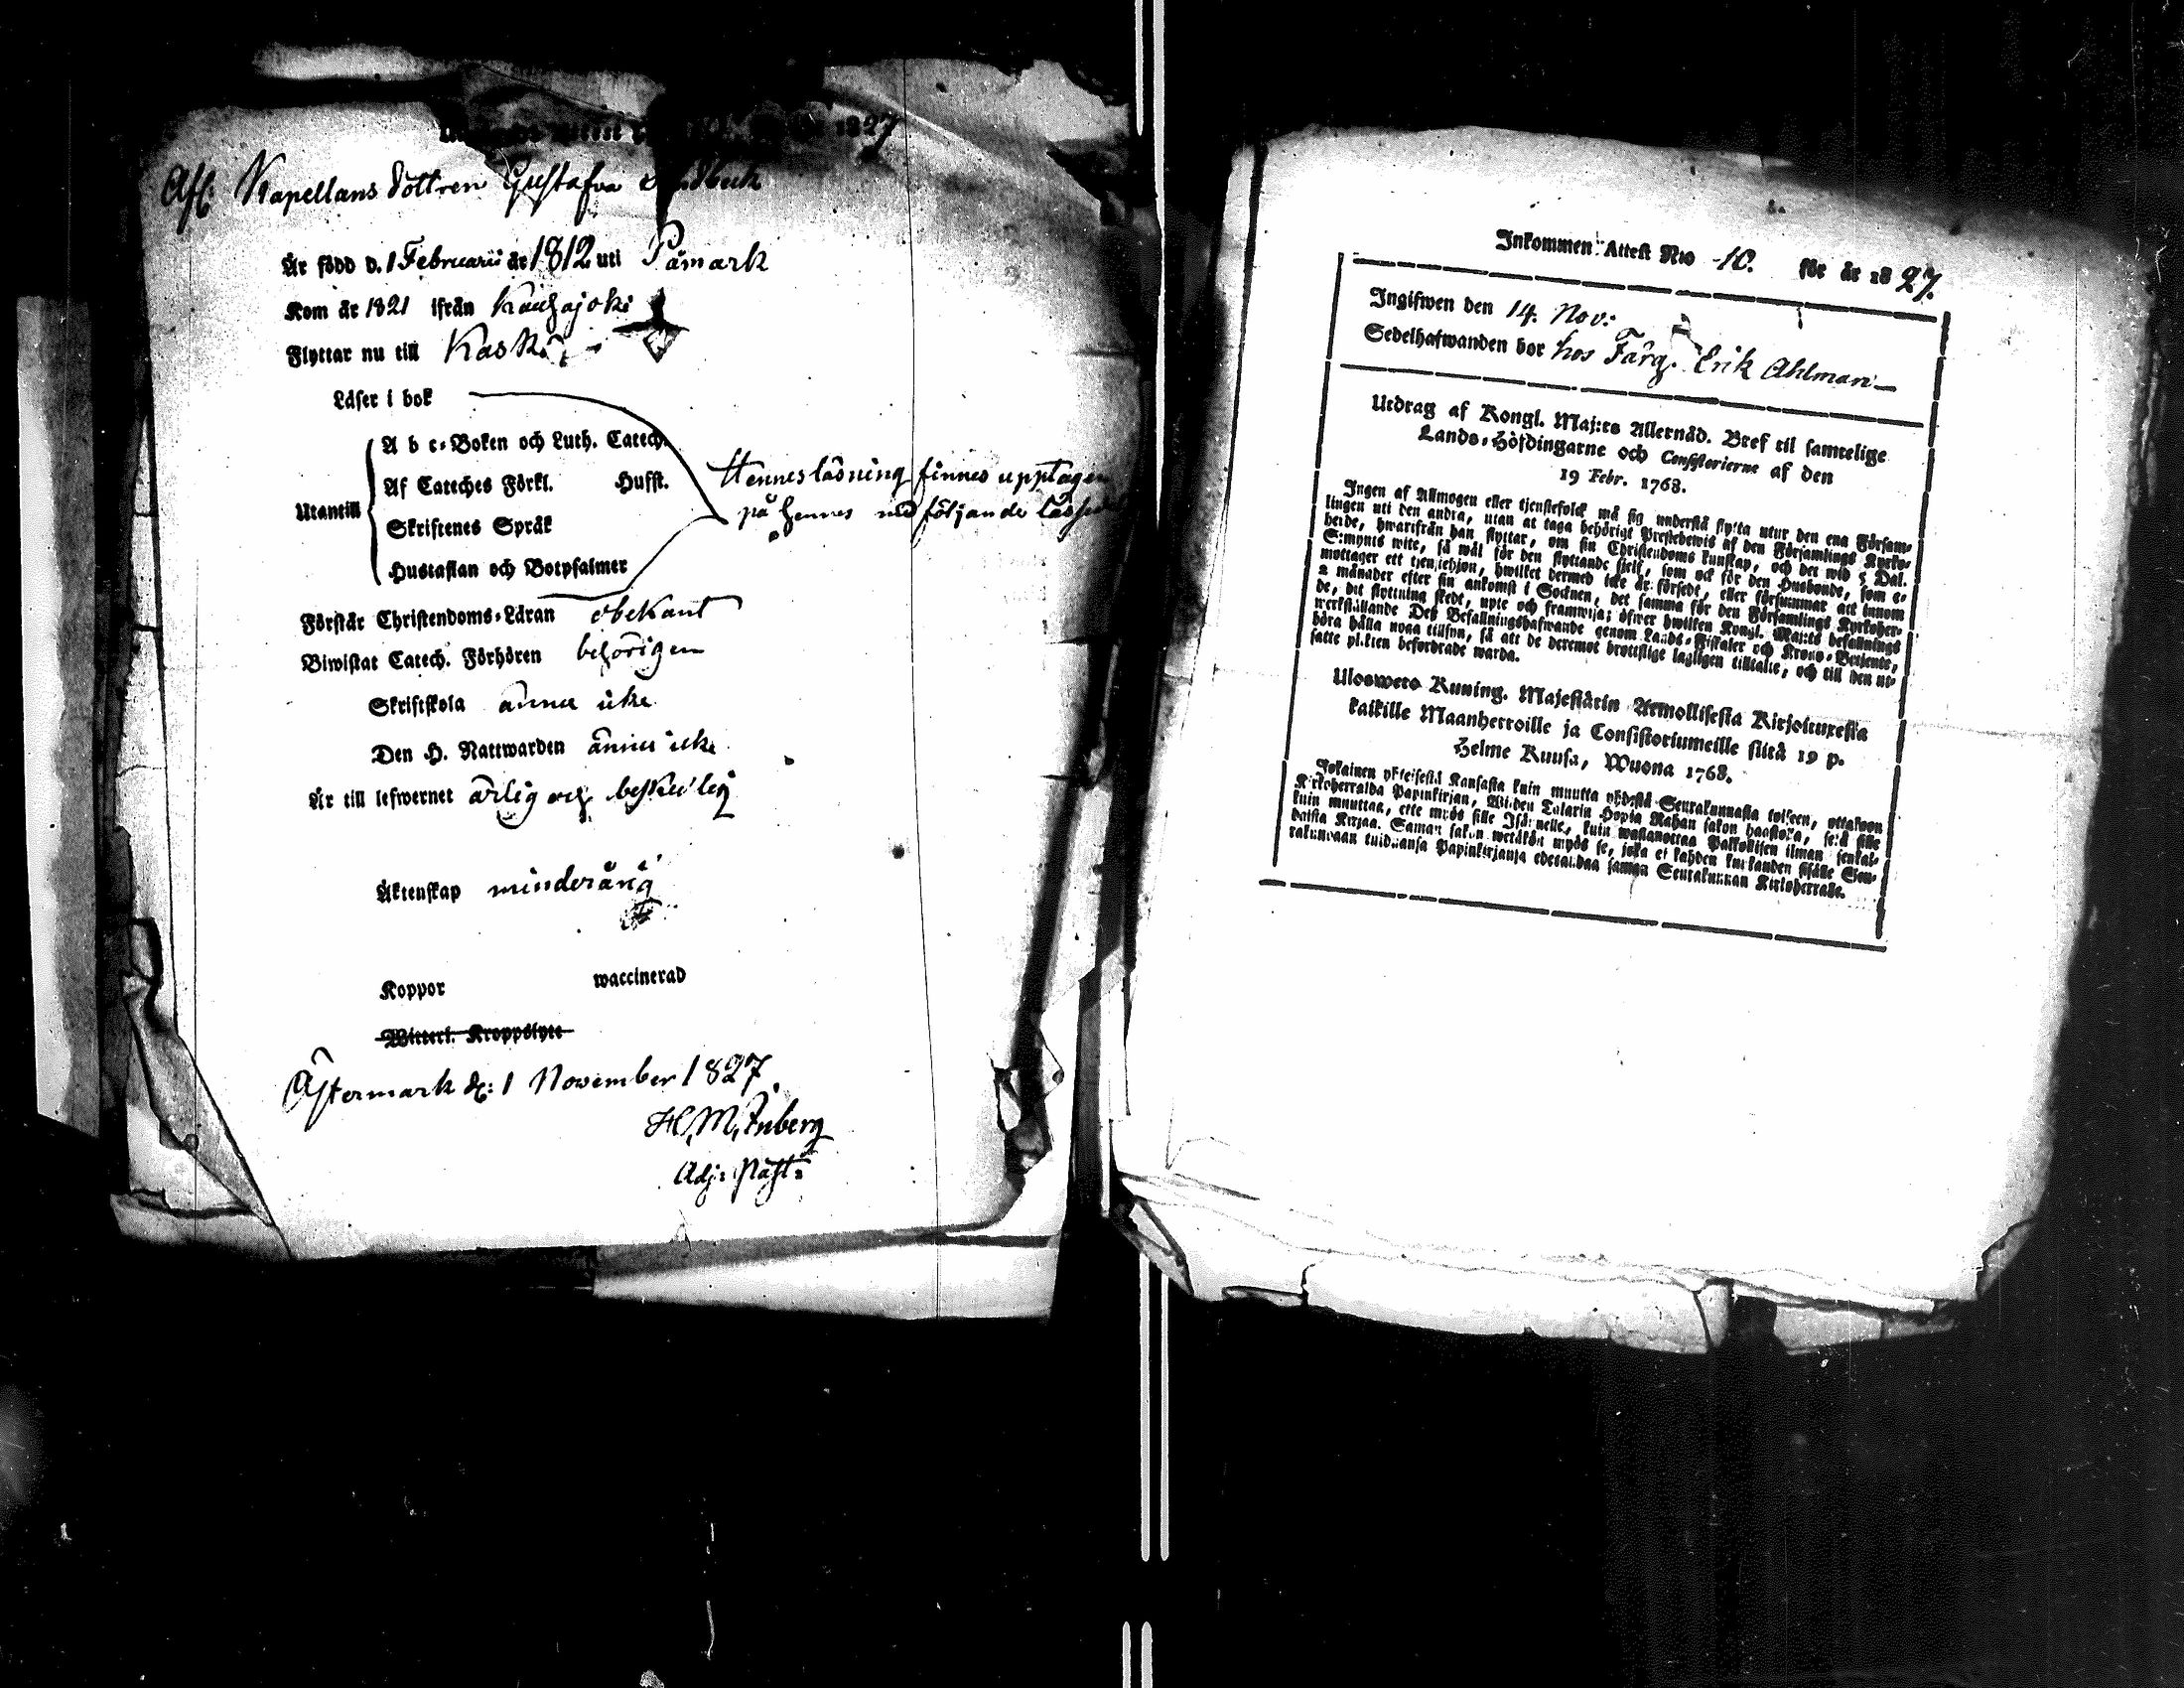 1827
Afl: Kapellans dottren Gustafva
Är född d. 1 Februarii år 1812 uti Påmark
Kom år 1821 ifrån Kauhajoki
Flyttar nu till Kaskö
Läser i bok
Utantill
A b c-Boken och Luth. Catech.
Af Cateches Förkl. Husst.
Skriftenes Språk
Hustaflan och Botpsalmer
Hennes läsning finnes upptagen
på hennes medföljande
Förstår Christendoms-Läran obekant
Biwistat Catech. Förhören behörigen
Skriftskola ännu icke
Den H. Nattwarden ännu icke
Är till lefwernet ärlig och beskedlig
Äktenskap minderårig
Koppor waccinerad
Witterl. Kroppslyte
Östermark d: 1 November 1827
Adj: Past:
Inkommen Attest N:o 10. för år 1827.
Ingifwen den 14. Nov:
Sedelhafwanden bor hos Färg. Erik Ahlman
Utdrag af Kongl. Maj:ts Allernåd. Bref til samtelige
Lands-Höfdingarne och Consistorierne af den
19 Febr. 1768.
Ingen af Allmogen eller tjenstefolck må sig understå flytta utur den ena Försam-
lingen uti den andra, utan at taga behörigt Prestebewis af den Församlings Kyrko-
herde, hwarifrån han flyttar, om sin Christendoms kunskap, och det wid 5 Dal.
S:mynts wite, så wäl för den flyttande sjelf, som ock för den Husbonde, som e-
mottager ett tjenstehjon, hwilket dermed icke är försedt, eller försummat att innom
2 månader efter sin ankomst i Socknen, det samma för den Församlings Kyrkoher-
de, dit flyttning skedt, upte och framwisa; öfwer hwilken Kongl. Maj:ts befallnings
werkställande Deß Befallningshafwande genom Lands-Fiskaler och Krono-Betjente,
böra hålla noga tillsyn, så att de deremot brottslige lagligen tilltalte, och till den ut-
satte plikten befordrade warda.
Ulosweto Kuning. Majestätin Armollisesta Kirjoituxesta
kaikille Maanherroille ja Consistoriumeille siitä 19 p.
Helme Kuusa, Wuona 1768.
Jokainen yhteisestä Kansasta kuin muutta yhdestä Seurakunnasta toiseen, ottakoon
Kirkoherralda Papinkirjan, Wiiden Talarin Hopia Rahan sakon haastolla, sekä sille
kuin muuttaa, ette myös sille Isännelle, kuin wastanottaa Palkollisen ilman senkal-
daista Kirjaa. Saman sakon wetäkön myös se, joka ei kahden kuukauden sisälle Seu-
rakundaan tulduansa Papinkirjansa edestuldaa saman Seurakunnan Kirkoherralle.